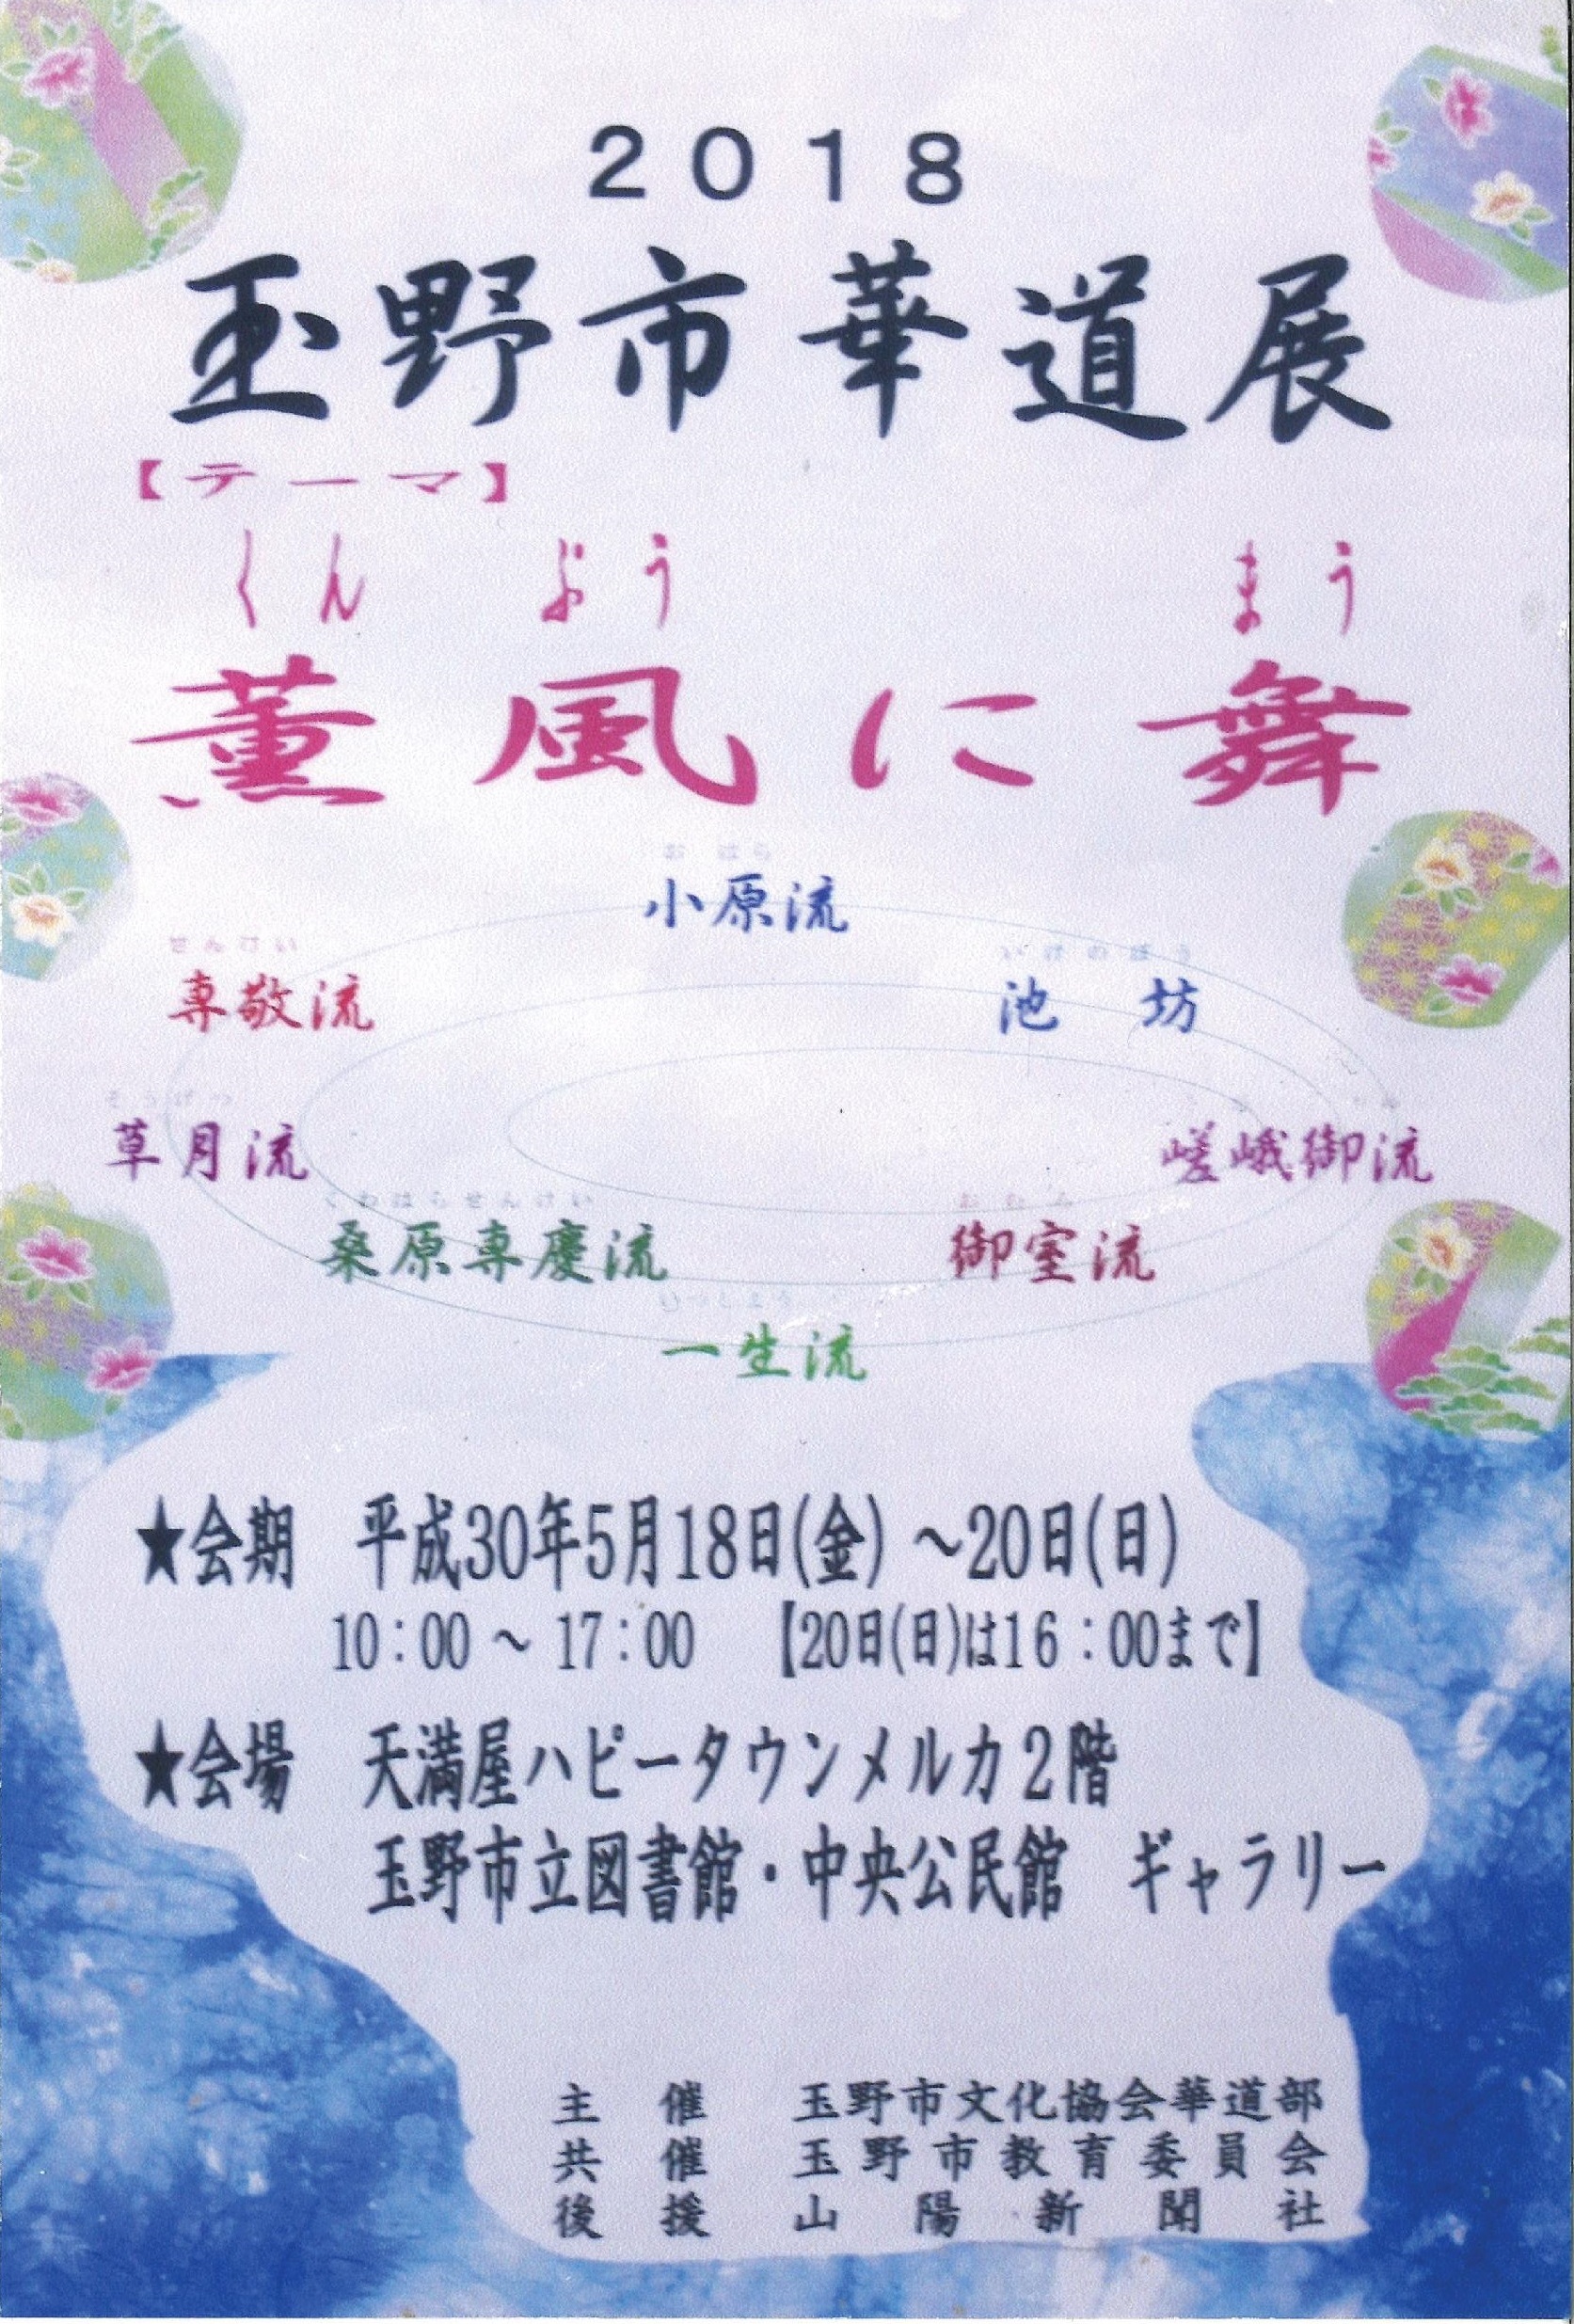 2018
玉野市華道展
【テーマ】
くん ぷう まう
薫風に舞
おはら
小原流
せんけい いけのぼう
専敬流 池 坊
そうげつ
草月流 嵯峨御流
くわはらせんけい おむろ
桑原専慶流 御室流
いっしょう
一生流
★会期 平成30年5月18日(金)～20日(日)
10:00～17:00 【20日(日)は16:00まで】
★会場 天満屋ハピータウンメルカ2階
玉野市立図書館・中央公民館 ギャラリー
主 催 玉野市文化協会華道部
共 催 玉野市教育委員会
後 援 山陽新聞社